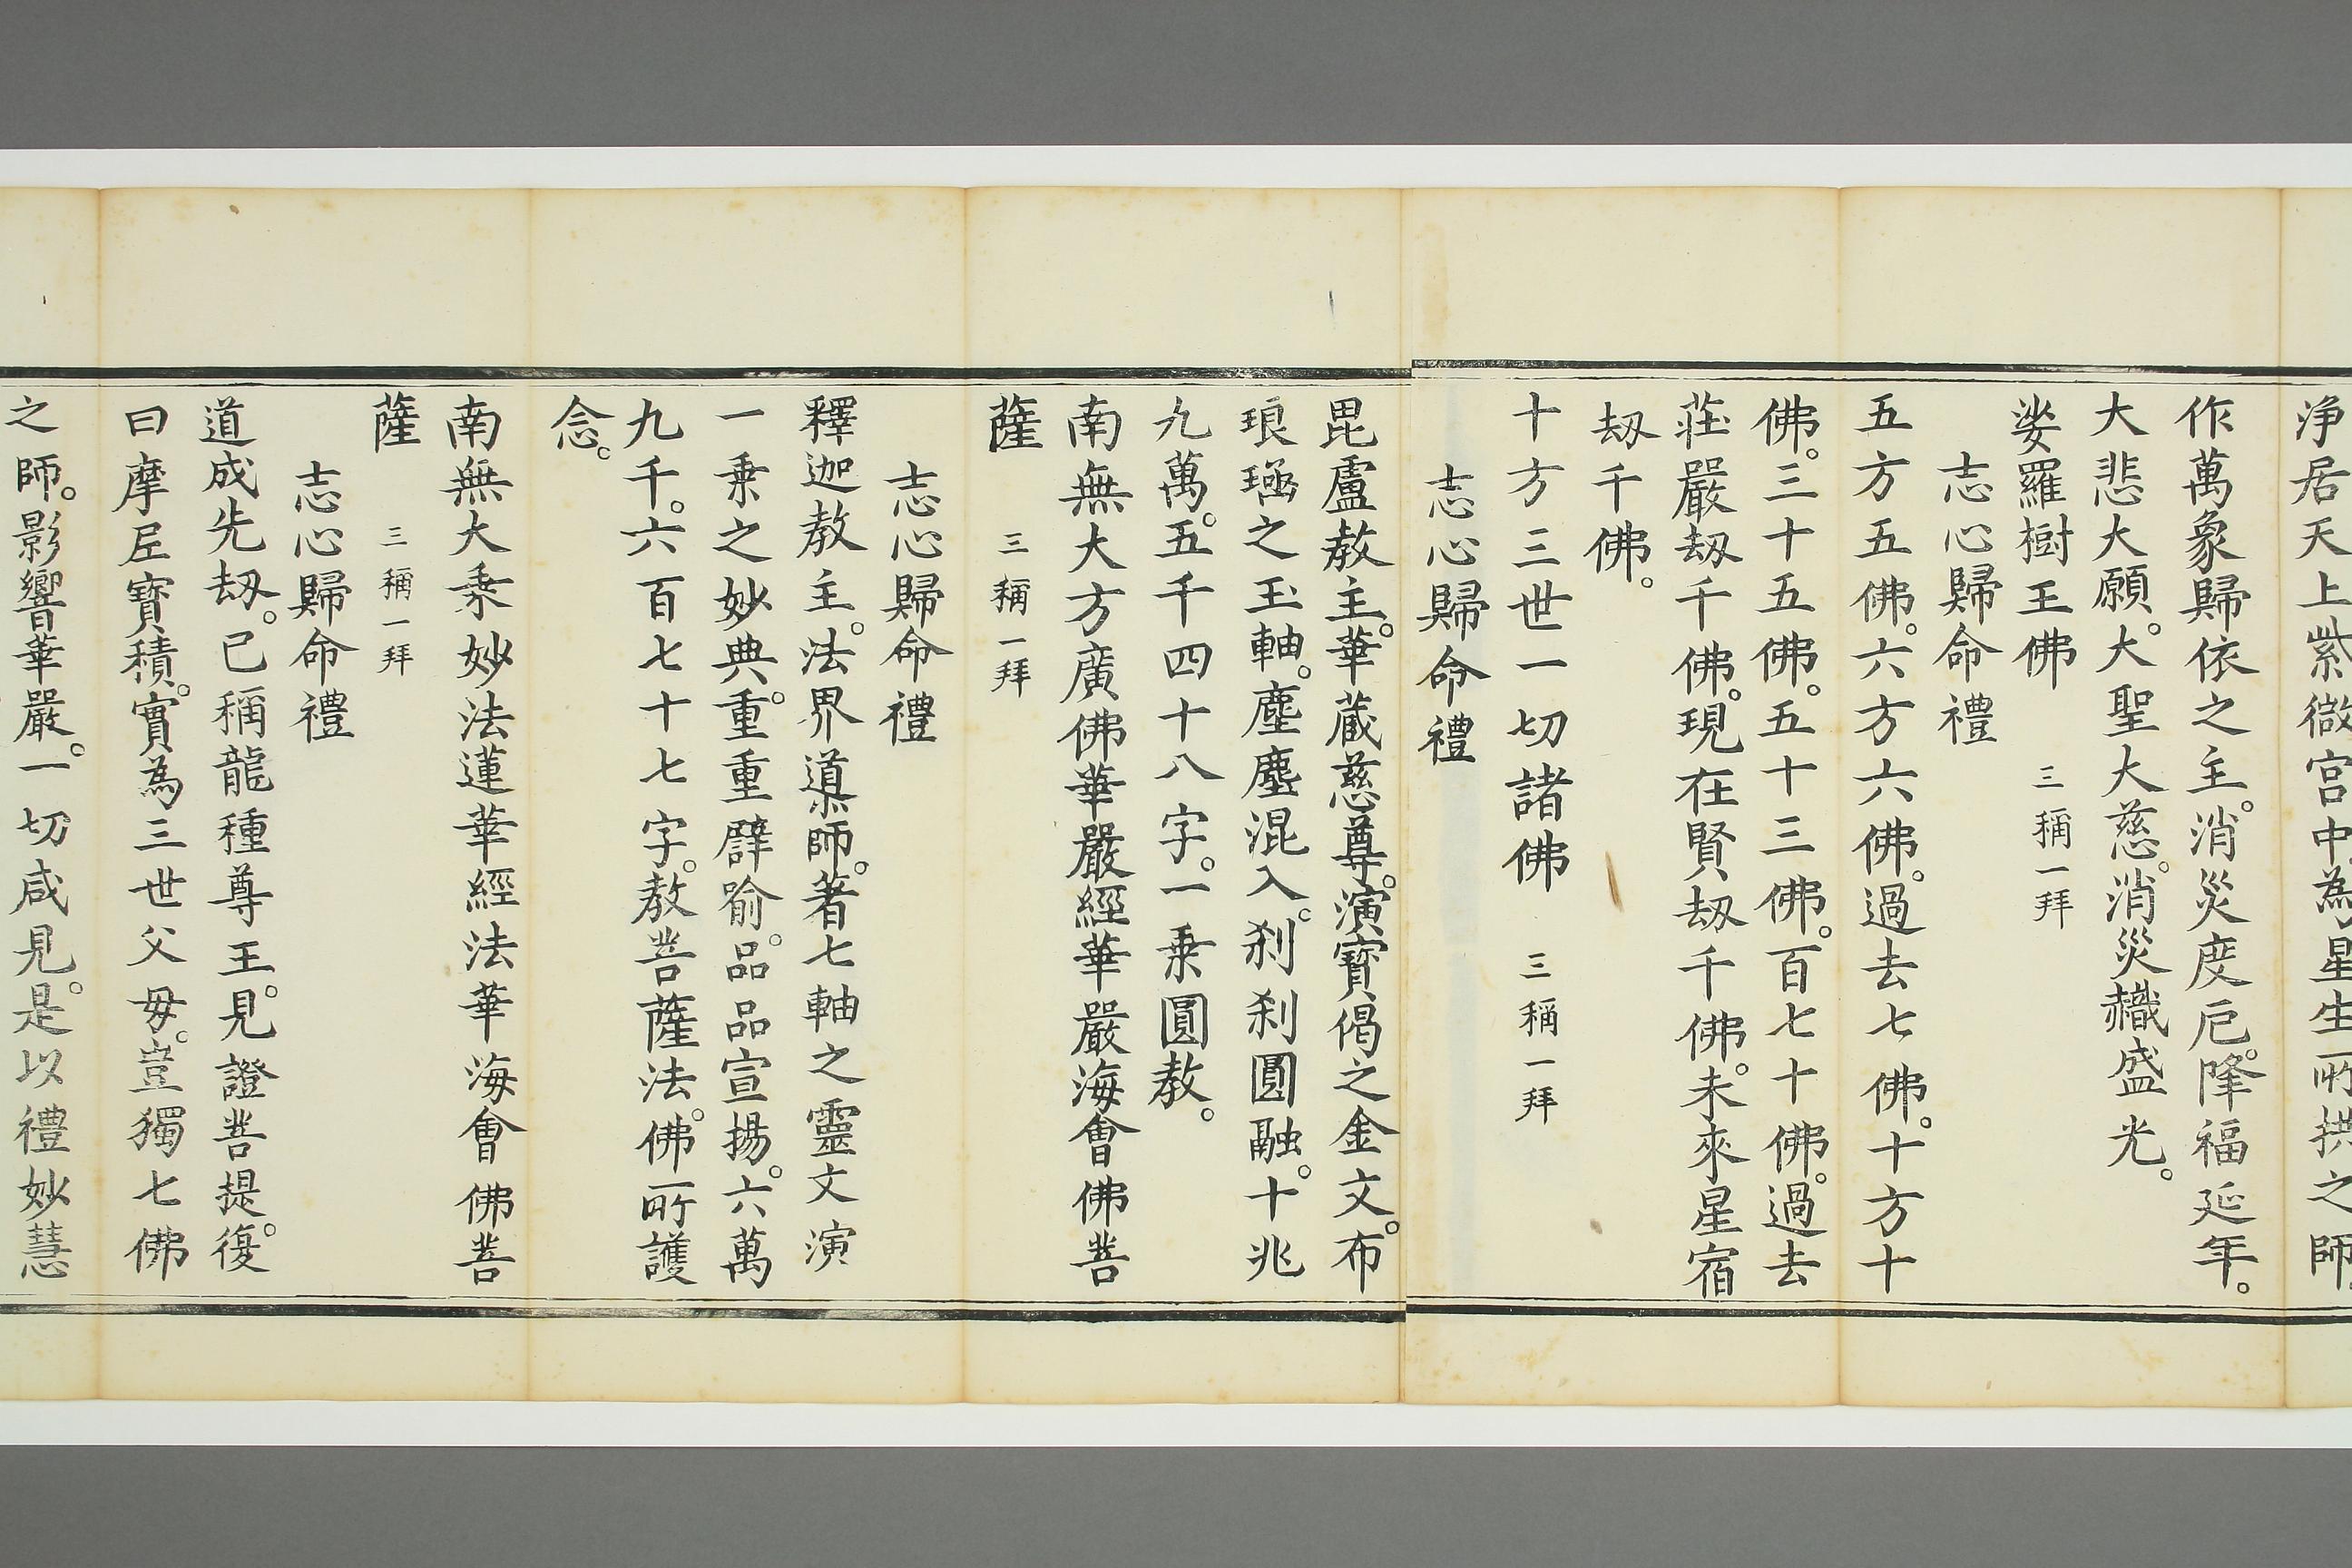 浄居天上紫微宫中為星生所拱之師
作萬象歸依之主。消災度厄。隆福延年。
大悲大願。大聖大慈。消災熾盛光。
娑羅樹王佛 三稱一拜
志心歸命禮
五方五佛。六方六佛。過去七佛。十方十
佛。三十五佛。五十三佛。百七十佛。過去
莊嚴刼千佛。現在賢刼千佛。未來星宿
刼千佛。
十方三世一切諸佛 三稱一拜
志心歸命禮
毘盧教主。華蔵慈尊。演寶偈之金文。布
琅函之玉軸。塵塵混入。刹刹圓融。十兆
九萬。五千四十八字。一乗圓教。
南無大方廣佛華嚴經華嚴海會佛菩
薩 三稱一拜
志心歸命禮
釋迦教主。法界導師。著七軸之靈文演
一乗之妙典。重重譬喻。品品宣揚。六萬
九千。六百七十七字。教菩薩法。佛所護
念。
南無大乗妙法蓮華經法華海會佛菩
薩 三稱一拜
志心歸命禮
道成先刼。已稱龍種尊王。見證菩提。復
曰摩尼寶積。實為三世父母。豈獨七佛
之師。影響華嚴。一切咸見。是以禮妙慧